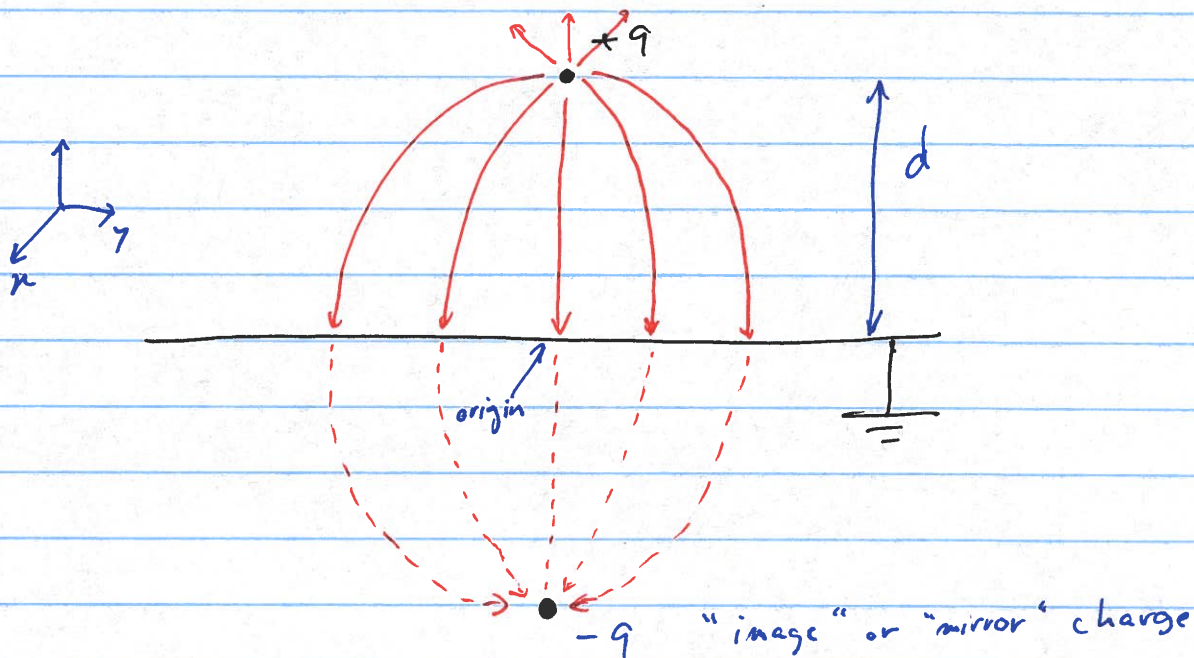 + q
d
y
x
origin
- q "image" or "mirror" charge